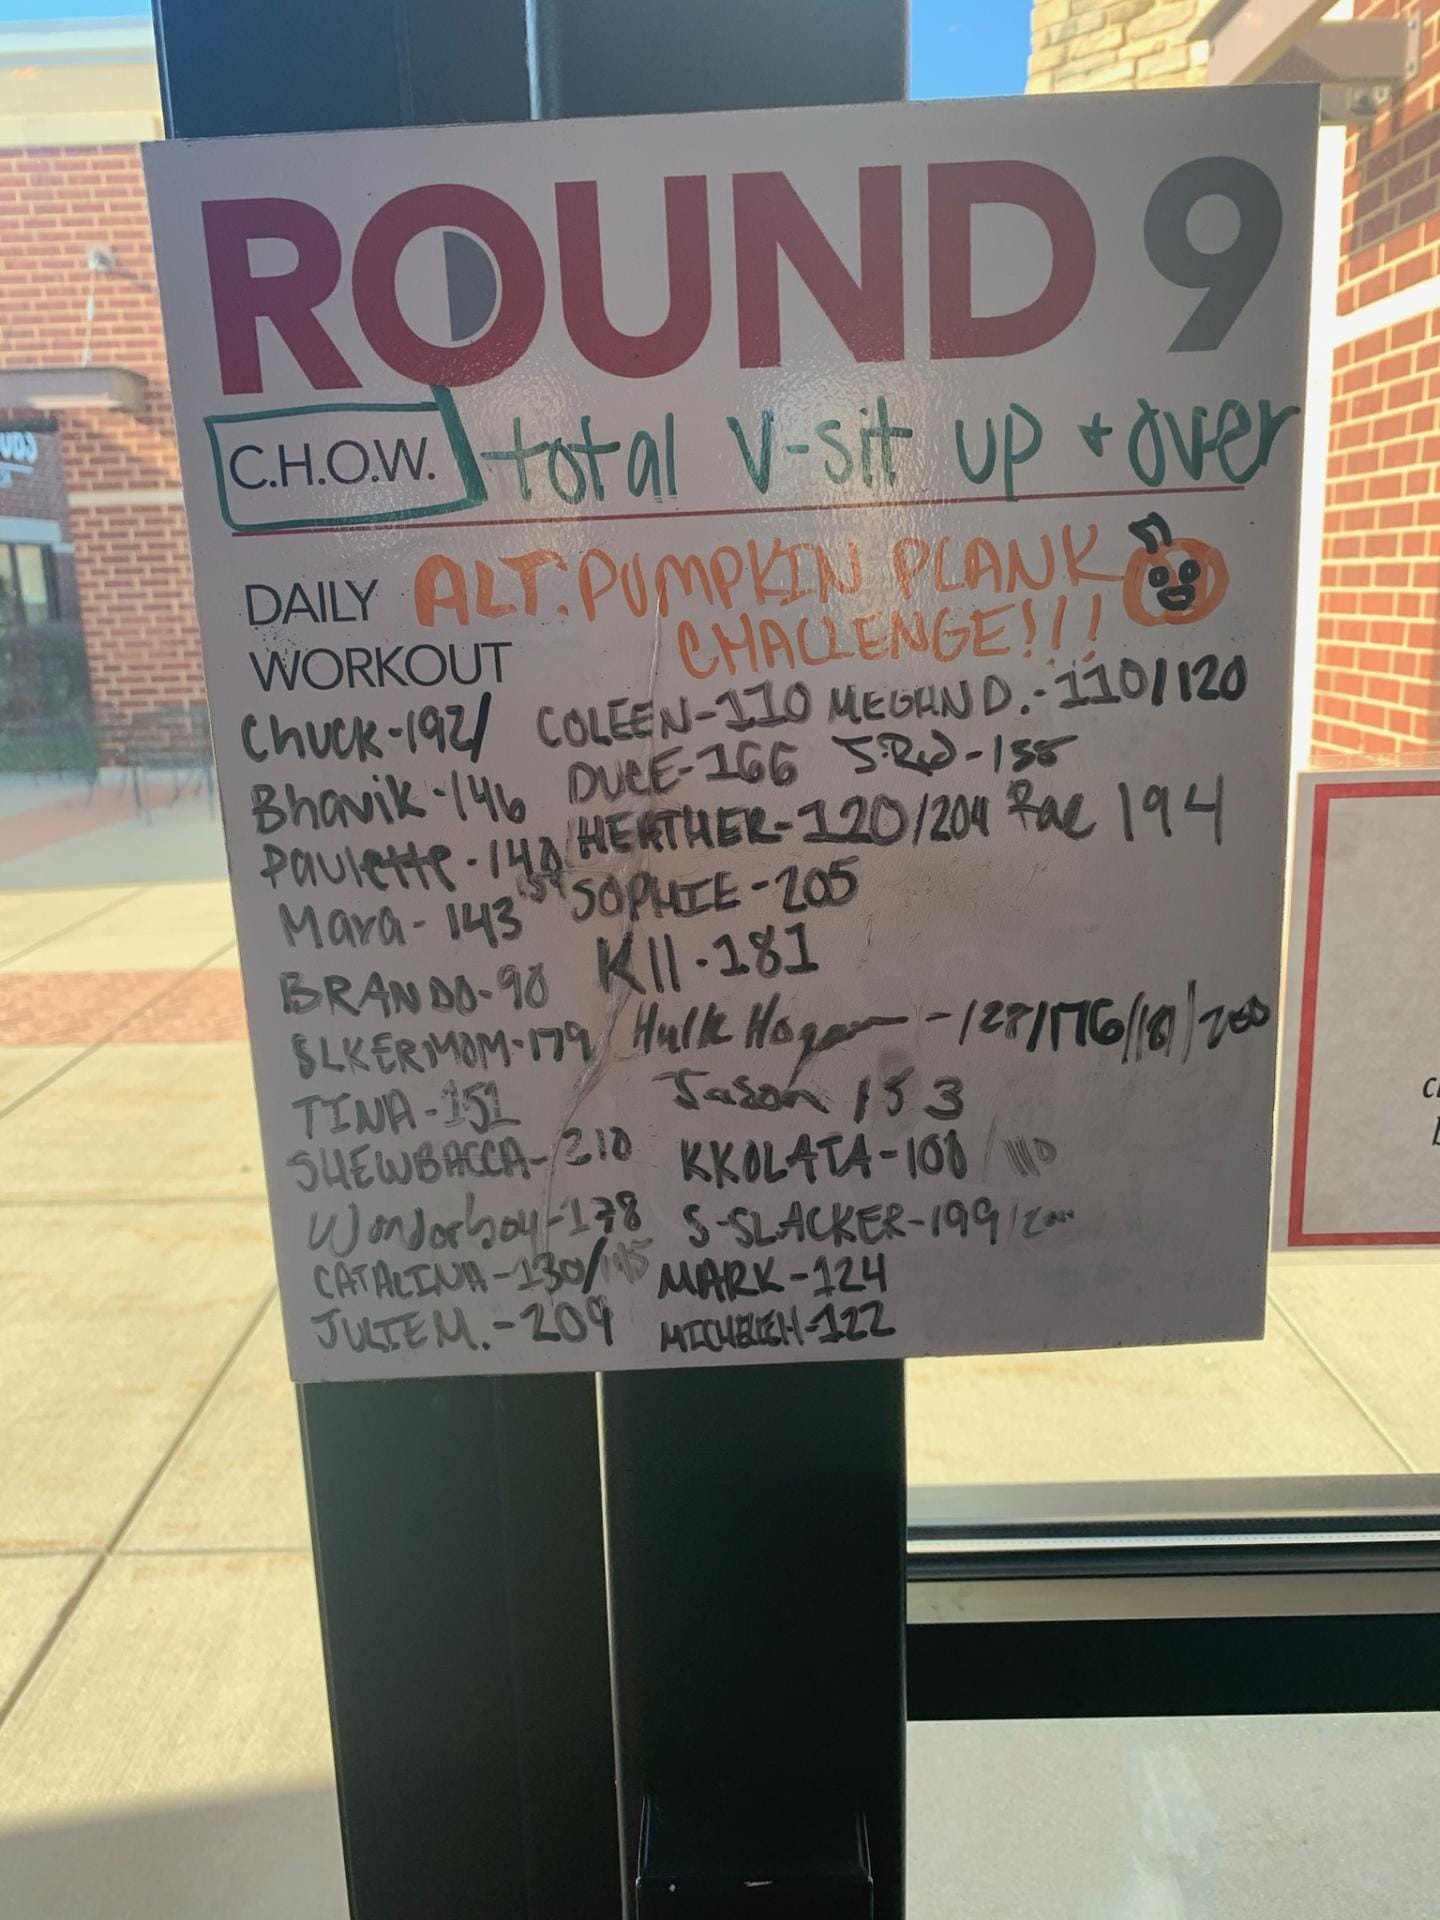 ROUND 9
C.H.O.W. total V-sit up + over
DAILY WORKOUT
ALT. PUMPKIN PLANK
CHALLENGE!!!
Chuck-192/
Bhavik-146
Paulette-148
Mara-143
BRANDO-98
SLKERMOM-179
TINA-151
SHEWBACCA-210
Wonderboy-178
CATALINA-130/
JULIE M.-209
COLEEN-110
DUCE-166
HEATHER-120/204
SOPHIE-205
KII-181
Hulk Hogan-127/176/181/200
Jason 153
KKOLATA-100/110
S-SLACKER-199/
MARK-124
MICHELEH-122
MEGHN D.-110/120
J.Rod-155
Rae 194